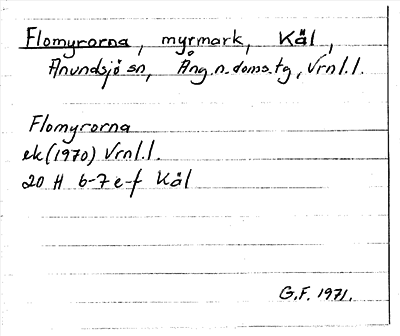 Flomyrorna, myrmark, Käl,
Anundsjö sn, Ång.n.doms.tg, Vrnl.l.
Flomyrorna
ek(1970) Vrnl.l.
20 H 6-7 e-f Käl
G.F. 1971.